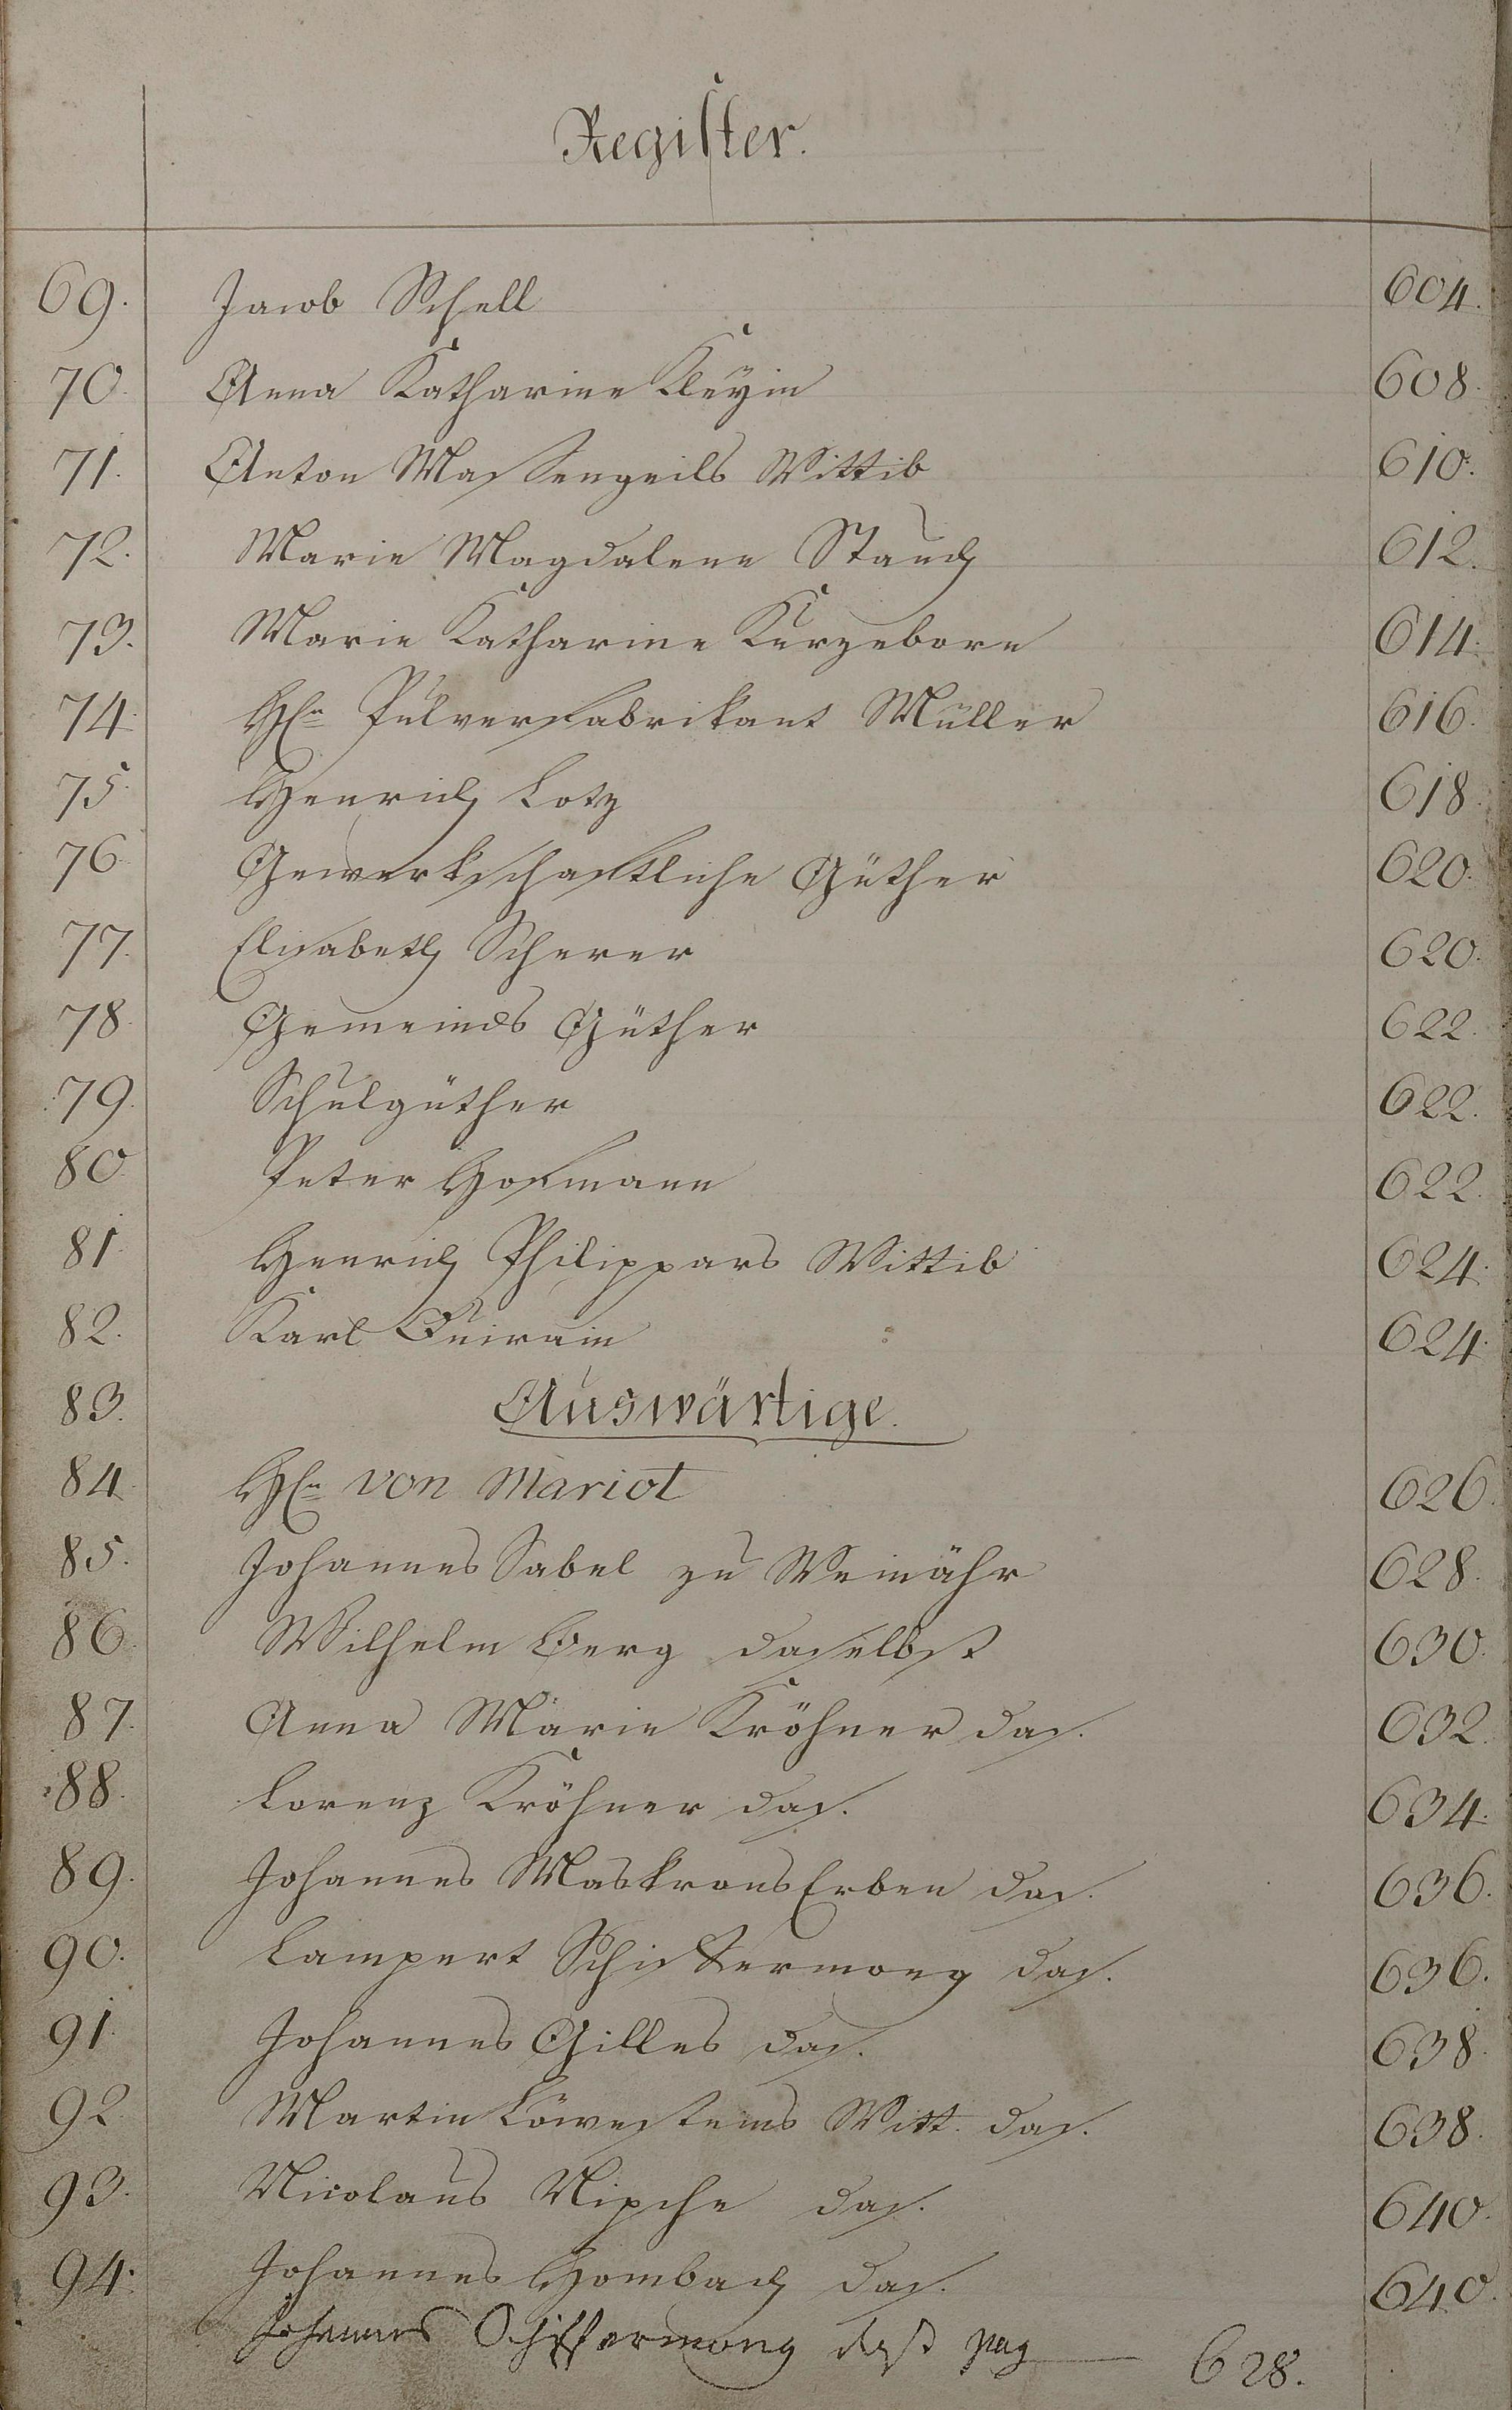 Register.
69. Jacob Schell 604.
70. Anna Katharine Kleyin 608.
71. Anton Massengeils Wittib 610.
72. Marie Magdalene Stauch 612.
73. Marie Katharine Kurzeborn 614.
74. Hn Pulverfabrikant Müller 616.
75. Henrich Lotz 618.
76. Gewerkschaftliche Güther 620.
77. Elisabeth Scherer 620.
78. Gemeinds Güther 622.
79. Schulgüther 622.
80. Peter Hofmann 622.
81. Henrich Philippars Wittib 624.
82. Karl Quirain 624.
83. Auswärtige.
84. Hn von Mariot 626.
85. Johannes Sabel zu Weinähr 628.
86. Wilhelm Berg daselbst 630.
87. Anna Marie Kröhner das. 632.
88. Lorenz Kröhner das. 634.
89. Johannes Maskrons Erben das. 636.
90. Lampert das. 636.
91. Johannes Gilles das. 638.
92. Martin Löwensteins Witt. das. 638.
93. Nicolaus Nipsche das. 640.
94. Johannes Hombach das. 640.
Johannes Schiffermong dass pag 628.